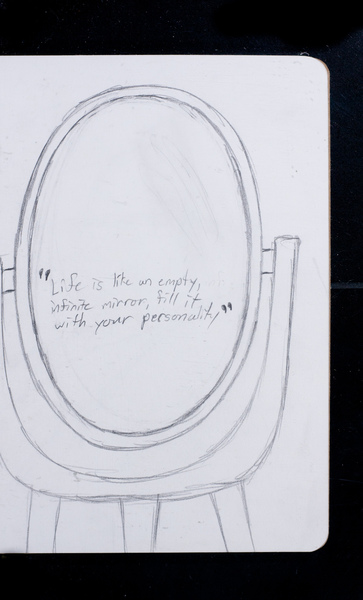 "Life is like an empty,
infinite mirror, fill it
with your personality"